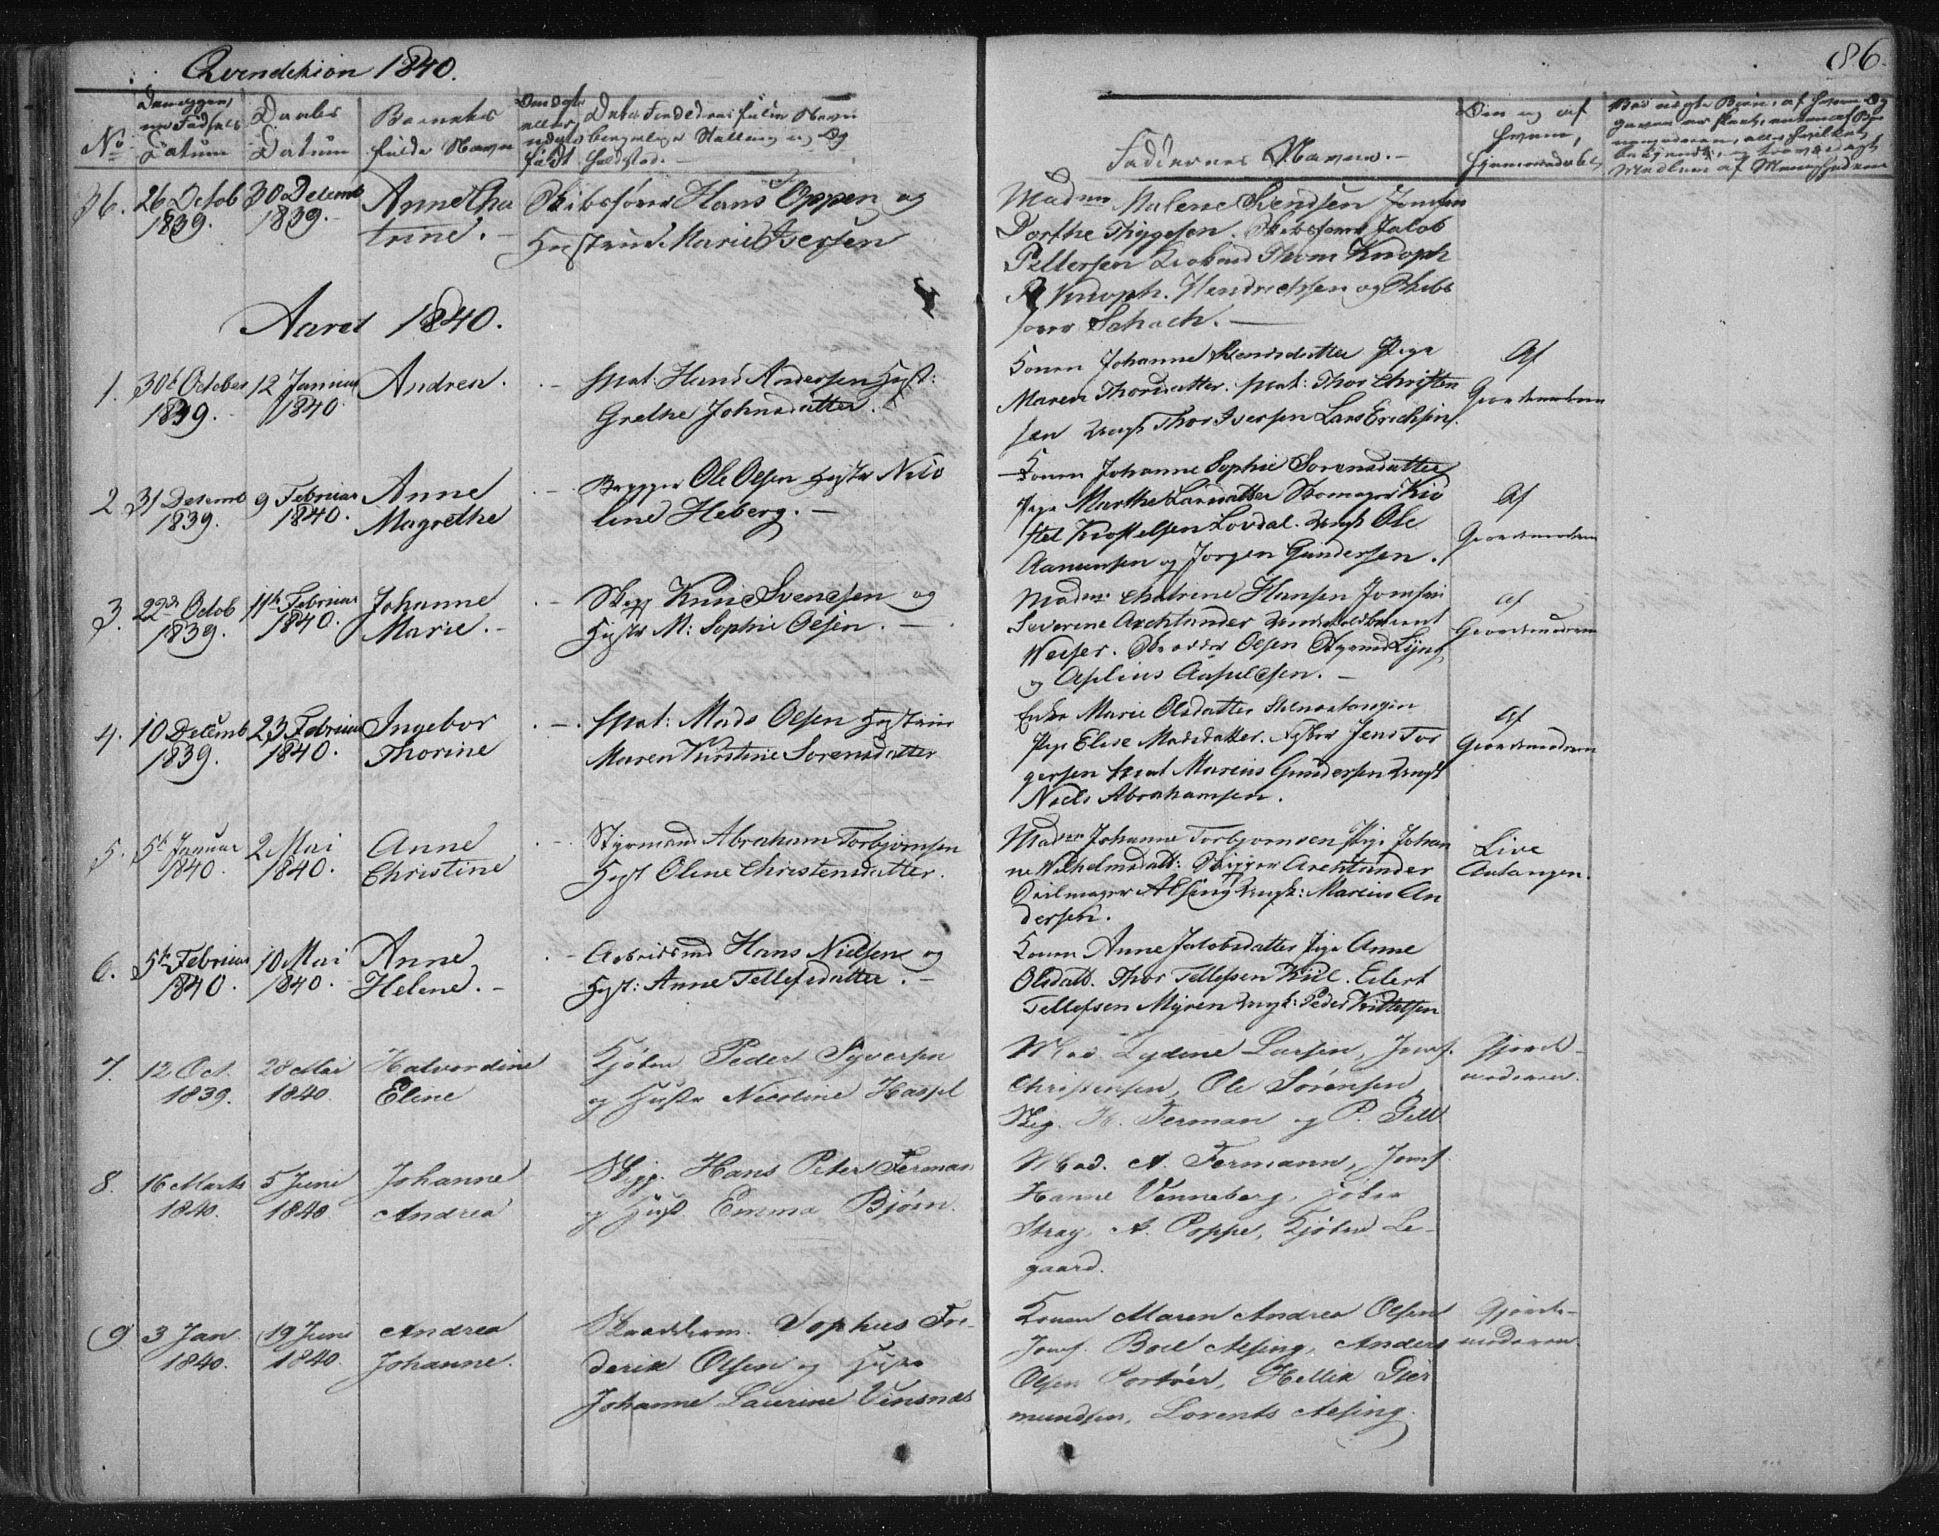 Qvindekiøn 1840.
186.
No
Datum
Daabs Datum
Barnets fulde Navn
Faddernes Navne. -
36. 26 Octob 1839. 30 Decemb 1839. - Anne Cha
trine. -
Skibsfører Hans Oppen og
Hustrue Marie Iversen
Mad Malene Svendsen Jomfru
Dorthe Thygesen. Skibsfører Jakob
Pettersen Thom Knoph
P Knoph. Hendrichsen og Skibs
fører Schach. -
Aaret 1840.
1. 30te October 1839. - 12 Januar 1840. Andrea. . - Mat: Hans Andersen Hust:
Grethe Johnsdatter.
Konen Johanne Svendsdatter Pige
Maren Thorsdatter. Mat: Thor Christen
sen Ungk Thor Iversen Lars Erichsen.
Af
Gjordemoderen
2. 31 Decemb 1839. 9 Februar 1840. Anne
Magrethe
. - Brygger Ole Olsen Hustr Nico
line Heberg. -
Konen Johanne Sophie Sorensdatter
Pige Marthe Larsdatter Skomager Kio
stel Kiostelsen Lovdal. Ungk Ole
Aanunsen og Jorgen Gundersen.
Af
Gjordemoderen
3. 22de Octob 1839. 11te Februar 1840. Johanne
Marie. -
. - Skipp Knud Svendsen og
Hustr M: Sophie Olsen. -
Mad Chatrine Hansen Jomfru
Severine Archtander
Weiser. Olsen Lyng
og Aslius Aaselsen. -
af
Gjordemoderen
4. 10 Decemb 1839. 23 Februar 1840. Ingebor
Thorine
. - Mat: Mads Olsen Hustrue
Maren Kirstine Sorensdatter
Enke Marie Olsdatter Steensetangen
Pige Elise Madsdatter. Jens Tor
gersen Mat Marius Gundersen Ungk
Niels Abrahamsen.
Af
Gjordemoderen
5. 5te Januar 1840. 2 Mai 1840. Anne
Christine
. - Styrmand Abraham Torbjornsen
Hust Oline Christensdatter.
Mad Johanne Torbjornsen Pige Johan
ne Wilhelmsdatt: Skipper Archtander
Seilmager Alsing Ungk: Marius An
dersen.
Live
Aulangen.
6. 5te Februar 1840. 10 Mai 1840. Anne
Helene. -
. - Arbeidsmd Hans Nielsen og
Hust: Anne Tellefsdatter. -
Konen Anne Jakobsdatter Pige Anne
Olsdatt. Thor Tellefsen Kiil. Eilert
Tellefsen Myren Ungk: Peder Kittelsen
7. 12 Oct. 1839. 28 Mai 1840. Halvordine
Eline
Kjøbm Peder Syversen
og Hustr Nicoline Hassel
Mad Lydine Larsen, Jomf.
Christensen, Ole Sørensen
Skip. H. Ferman og P. Gill
Gjorde-
moderen.
8. 16 Marts 1840. 5 Juni 1840 Johanne
Andrea
Skipp. Hans Peter Ferman
og Hust Emma Bjørn.
Mad. A. Fermann, Jomf
Hanne Venneberg,
Stray, A. Poppe, Kjøbm Le-
gaard.
9 3 Jan. 1840. 19 Juni 1840. Andrea
Johanne.
Sophus Fre-
derik Olsen og Hustr
Johanne Laurine Vinsnes
Konen Maren Andrea Olsen
Jomf. Boel Alsing, Anders
Olsen Portøer, Hellik Gjer
mundsen, Lorents Alsing.
Gjorde-
moderen.